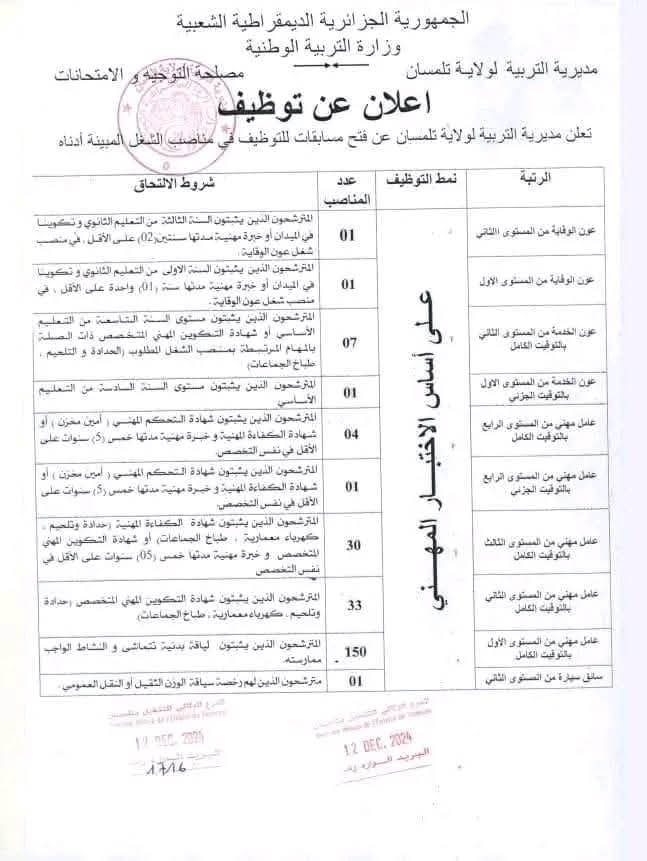 الجمهورية الجزائرية الديمقراطية الشعبية
وزارة التربية الوطنية
مديرية التربية لولاية تلمسان
مصلحة التوجيه و الامتحانات
اعلان عن توظيف
تعلن مديرية التربية لولاية تلمسان عن فتح مسابقات للتوظيف في مناصب الشغل المبينة أدناه
الرتبة
نمط التوظيف
عدد المناصب
شروط الالتحاق
على أساس الاختبار المهني
عون الوقاية من المستوى الثاني
01
المترشحون الذين يثبتون السنة الثالثة من التعليم الثانوي و تكوينا
في الميدان أو خبرة مهنية مدتها سنتين(02) على الأقل، في منصب
شغل عون الوقاية.
عون الوقاية من المستوى الأول
01
المترشحون الذين يثبتون السنة الاولى من التعليم الثانوي و تكوينا
في الميدان أو خبرة مهنية مدتها سنة (01) واحدة على الأقل، في
منصب شغل عون الوقاية.
عون الخدمة من المستوى الثاني
بالتوقيت الكامل
07
المترشحون الذين يثبتون مستوى السنة التاسعة من التعليم
الأساسي أو شهادة التكوين المهني المتخصص ذات الصلة
بالمهام المرتبطة بمنصب الشغل المطلوب (الحدادة و التلحيم،
طباخ الجماعات)
عون الخدمة من المستوى الأول
بالتوقيت الجزئي
01
المترشحون الذين يثبتون مستوى السنة السادسة من التعليم
الأساسي
عامل مهني من المستوى الرابع
بالتوقيت الكامل
04
المترشحون الذين يثبتون شهادة التحكم المهني ( أمين مخزن ) أو
شهادة الكفاءة المهنية و خبرة مهنية مدتها خمس (5) سنوات على
الأقل في نفس التخصص.
عامل مهني من المستوى الرابع
بالتوقيت الجزئي
01
المترشحون الذين يثبتون شهادة التحكم المهني ( أمين مخزن ) أو
شهادة الكفاءة المهنية و خبرة مهنية مدتها خمس (5) سنوات على
الأقل في نفس التخصص.
عامل مهني من المستوى الثالث
بالتوقيت الكامل
30
المترشحون الذين يثبتون شهادة الكفاءة المهنية (حدادة وتلحيم ،
كهرباء معمارية ، طباخ الجماعات) أو شهادة التكوين المهني
المتخصص و خبرة مهنية مدتها خمس (05) سنوات على الأقل في
نفس التخصص
عامل مهني من المستوى الثاني
بالتوقيت الكامل
33
المترشحون الذين يثبتون شهادة التكوين المهني المتخصص (حدادة
وتلحيم ، كهرباء معمارية ، طباخ الجماعات)
عامل مهني من المستوى الأول
بالتوقيت الكامل
150
المترشحون الذين يثبتون لياقة بدنية تتماشى و النشاط الواجب
ممارسته.
سائق سيارة من المستوى الثاني
01
مترشحون الذين لهم رخصة سياقة الوزن الثقيل أو النقل العمومي.
الفرع الولائي للتشغيل بتلمسان
12 DEC. 2024
البريد الوارد رقم
1716
الفرع الولائي للتشغيل بتلمسان
12 DEC. 2024
البريد الوارد رقم